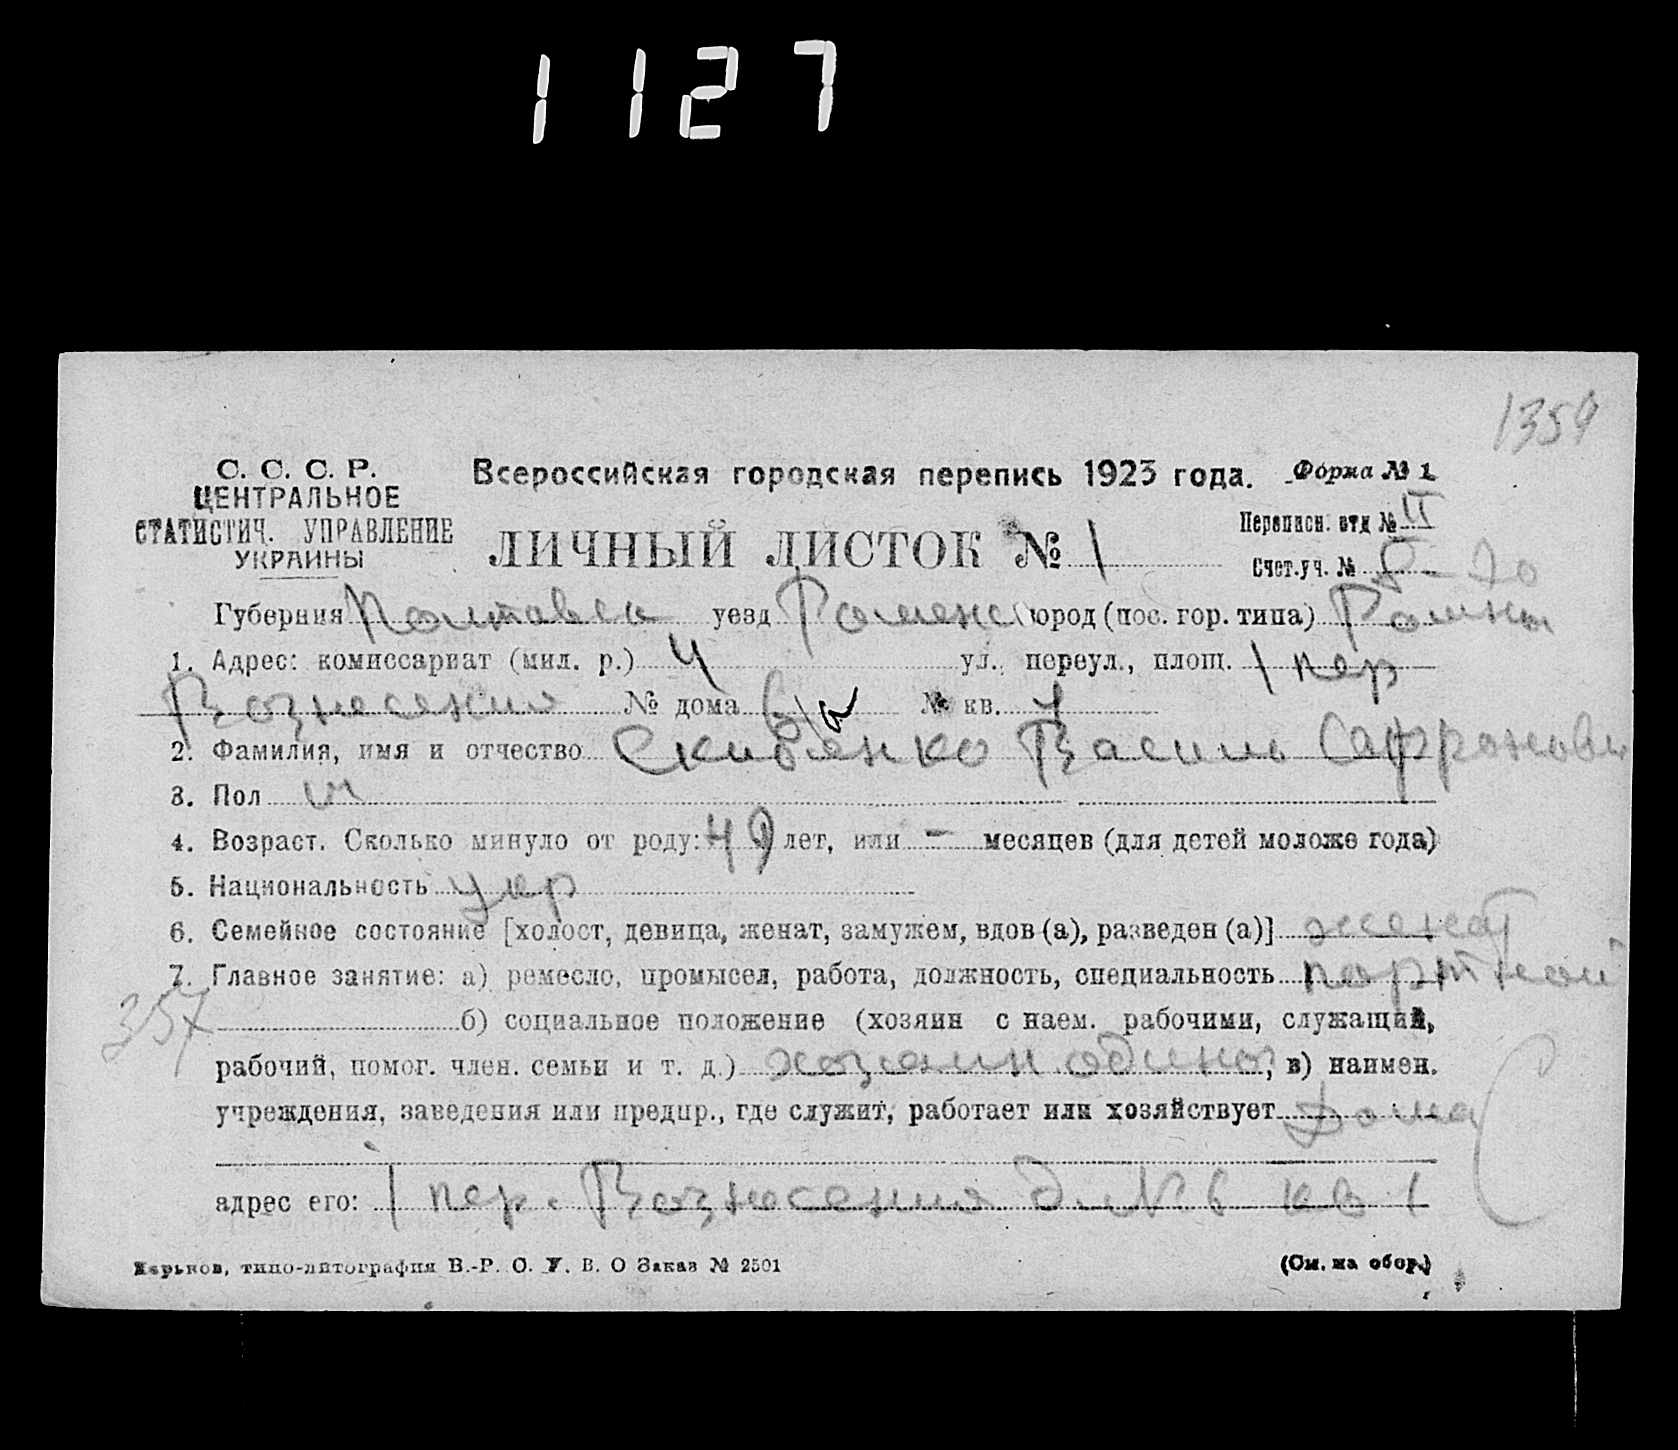 1127
1359
С. С. С. Р.
ЦЕНТРАЛЬНОЕ
СТАТИСТИЧ. УПРАВЛЕНИЕ
УКРАИНЫ
Всероссийская городская перепись 1923 года. Форма № 1
ЛИЧНЫЙ ЛИСТОК № 1
Переписн. отд № II
Счет.уч. №
Губерния Полтавск уезд Роменс город (пос. гор. типа) Ромны
1. Адрес: комиссариат (мил. р.) 4 ул., переул., площ. 1 пер
Вознесения № дома 6/а № кв. 1
2. Фамилия, имя и отчество Скивенко Василь Сафронови
3. Пол м
4. Возраст. Сколько минуло от роду: 49 лет, или – месяцев (для детей моложе года)
5. Национальность укр
6. Семейное состояние [холост, девица, женат, замужем, вдов (а), разведен (а)] женат
7. Главное занятие: а) ремесло, промысел, работа, должность, специальность портной
357
б) социальное положение (хозяин с наем. рабочими, служащий,
рабочий, помог. член. семьи и т. д.) хозяин одиноч, в) наимен.
учреждения, заведения или предпр., где служит, работает или хозяйствует дома
адрес его: 1 пер. Вознесения д. № 6 кв 1
Харьков, типо-литография В.-Р. О. У. В. О Заказ № 2501
(См. на обор.)